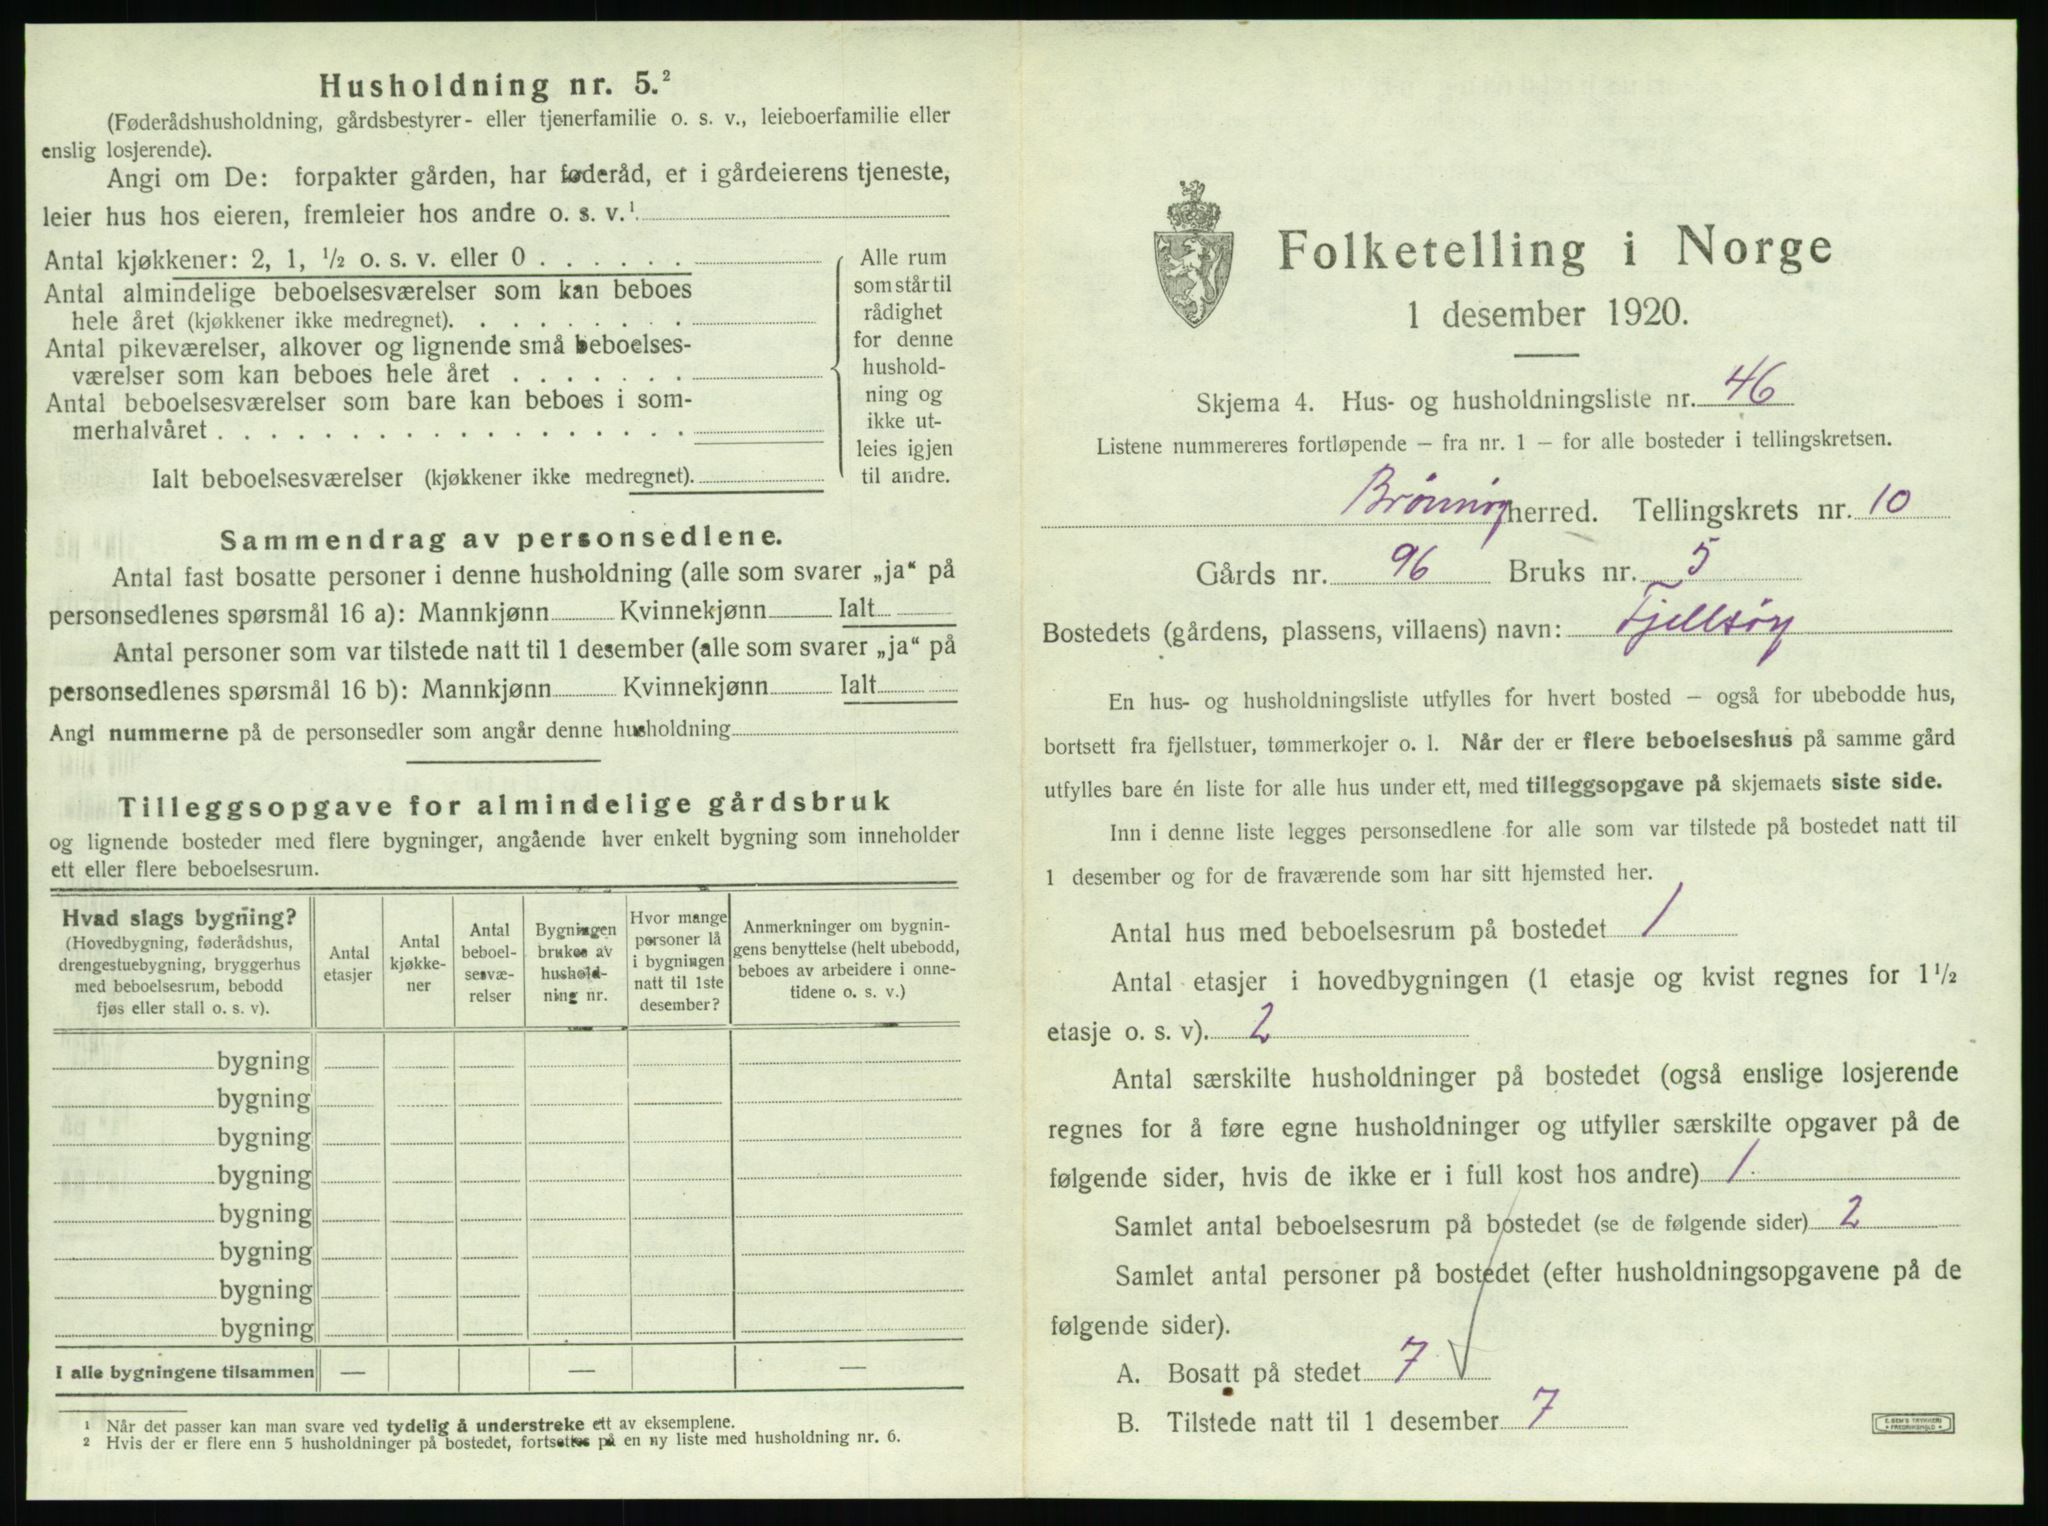 Husholdning nr. 5.²
(Føderådshusholdning, gårdsbestyrer- eller tjenerfamilie o. s. v., leieboerfamilie eller
enslig losjerende).
Angi om De: forpakter gården, har føderåd, er i gårdeierens tjeneste,
leier hus hos eieren, fremleier hos andre o. s. v.¹
Antal kjøkkener: 2, 1, ½ o. s. v. eller 0 . . . . . .
Antal almindelige beboelsesværelser som kan beboes
hele året (kjøkkener ikke medregnet). . . . . . . . .
Antal pikeværelser, alkover og lignende små beboelses-
værelser som kan beboes hele året . . . . . . .
Antal beboelsesværelser som bare kan beboes i som-
merhalvåret . . . . . . . . . . . . . . . . . .
Ialt beboelsesværelser (kjøkkener ikke medregnet).
Alle rum
som står til
rådighet
for denne
hushold-
ning og
ikke ut-
leies igjen
til andre.
Sammendrag av personsedlene.
Antal fast bosatte personer i denne husholdning (alle som svarer „ja“ på
personsedlenes spørsmål 16 a): Mannkjønn Kvinnekjønn Ialt
Antal personer som var tilstede natt til 1 desember (alle som svarer „ja“ på
personsedlenes spørsmål 16 b): Mannkjønn Kvinnekjønn Ialt
Angi nummerne på de personsedler som angår denne husholdning
Tilleggsopgave for almindelige gårdsbruk
og lignende bosteder med flere bygninger, angående hver enkelt bygning som inneholder
ett eller flere beboelsesrum.
Hvad slags bygning?
(Hovedbygning, føderådshus,
drengestuebygning, bryggerhus
med beboelsesrum, bebodd
fjøs eller stall o. s. v).
Antal
etasjer
Antal
kjøkke-
ner
Antal
beboel-
sesvæ-
relser
Bygningen
brukes av
hushold-
ning nr.
Hvor mange
personer lå
i bygningen
natt til 1ste
desember?
Anmerkninger om bygnin-
gens benyttelse (helt ubebodd,
beboes av arbeidere i onne-
tidene o. s. v.)
bygning
bygning
bygning
bygning
bygning
bygning
bygning
bygning
I alle bygningene tilsammen — — —
¹ Når det passer kan man svare ved tydelig å understreke ett av eksemplene.
² Hvis der er flere enn 5 husholdninger på bostedet, fortsettes på en ny liste med husholdning nr. 6.
Folketelling i Norge
1 desember 1920.
Skjema 4. Hus- og husholdningsliste nr. 46
Listene nummereres fortløpende – fra nr. 1 – for alle bosteder i tellingskretsen.
Brönnöy herred. Tellingskrets nr. 10
Gårds nr. 96 Bruks nr. 5
Bostedets (gårdens, plassens, villaens) navn: Fjellsöy
En hus- og husholdningsliste utfylles for hvert bosted – også for ubebodde hus,
bortsett fra fjellstuer, tømmerkojer o. l. Når der er flere beboelseshus på samme gård
utfylles bare én liste for alle hus under ett, med tilleggsopgave på skjemaets siste side.
Inn i denne liste legges personsedlene for alle som var tilstede på bostedet natt til
1 desember og for de fraværende som har sitt hjemsted her.
Antal hus med beboelsesrum på bostedet 1
Antal etasjer i hovedbygningen (1 etasje og kvist regnes for 1½
etasje o. s. v). 2
Antal særskilte husholdninger på bostedet (også enslige losjerende
regnes for å føre egne husholdninger og utfyller særskilte opgaver på de
følgende sider, hvis de ikke er i full kost hos andre) 1.
Samlet antal beboelsesrum på bostedet (se de følgende sider) 2
Samlet antal personer på bostedet (efter husholdningsopgavene på de
følgende sider).
A. Bosatt på stedet 7
B. Tilstede natt til 1 desember 7